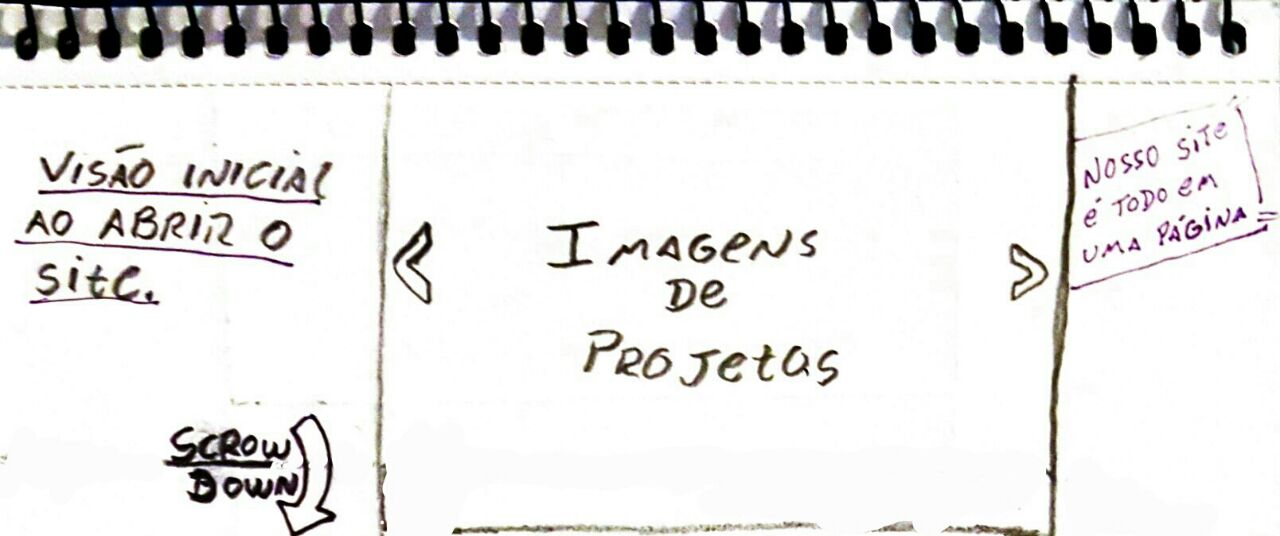 VISÃO INICIAL
AO ABRIR O
SITE.
SCROW
DOWN
<
IMAGENS
DE
PROJETAS
>
NOSSO SITE
É TODO EM
UMA PÁGINA